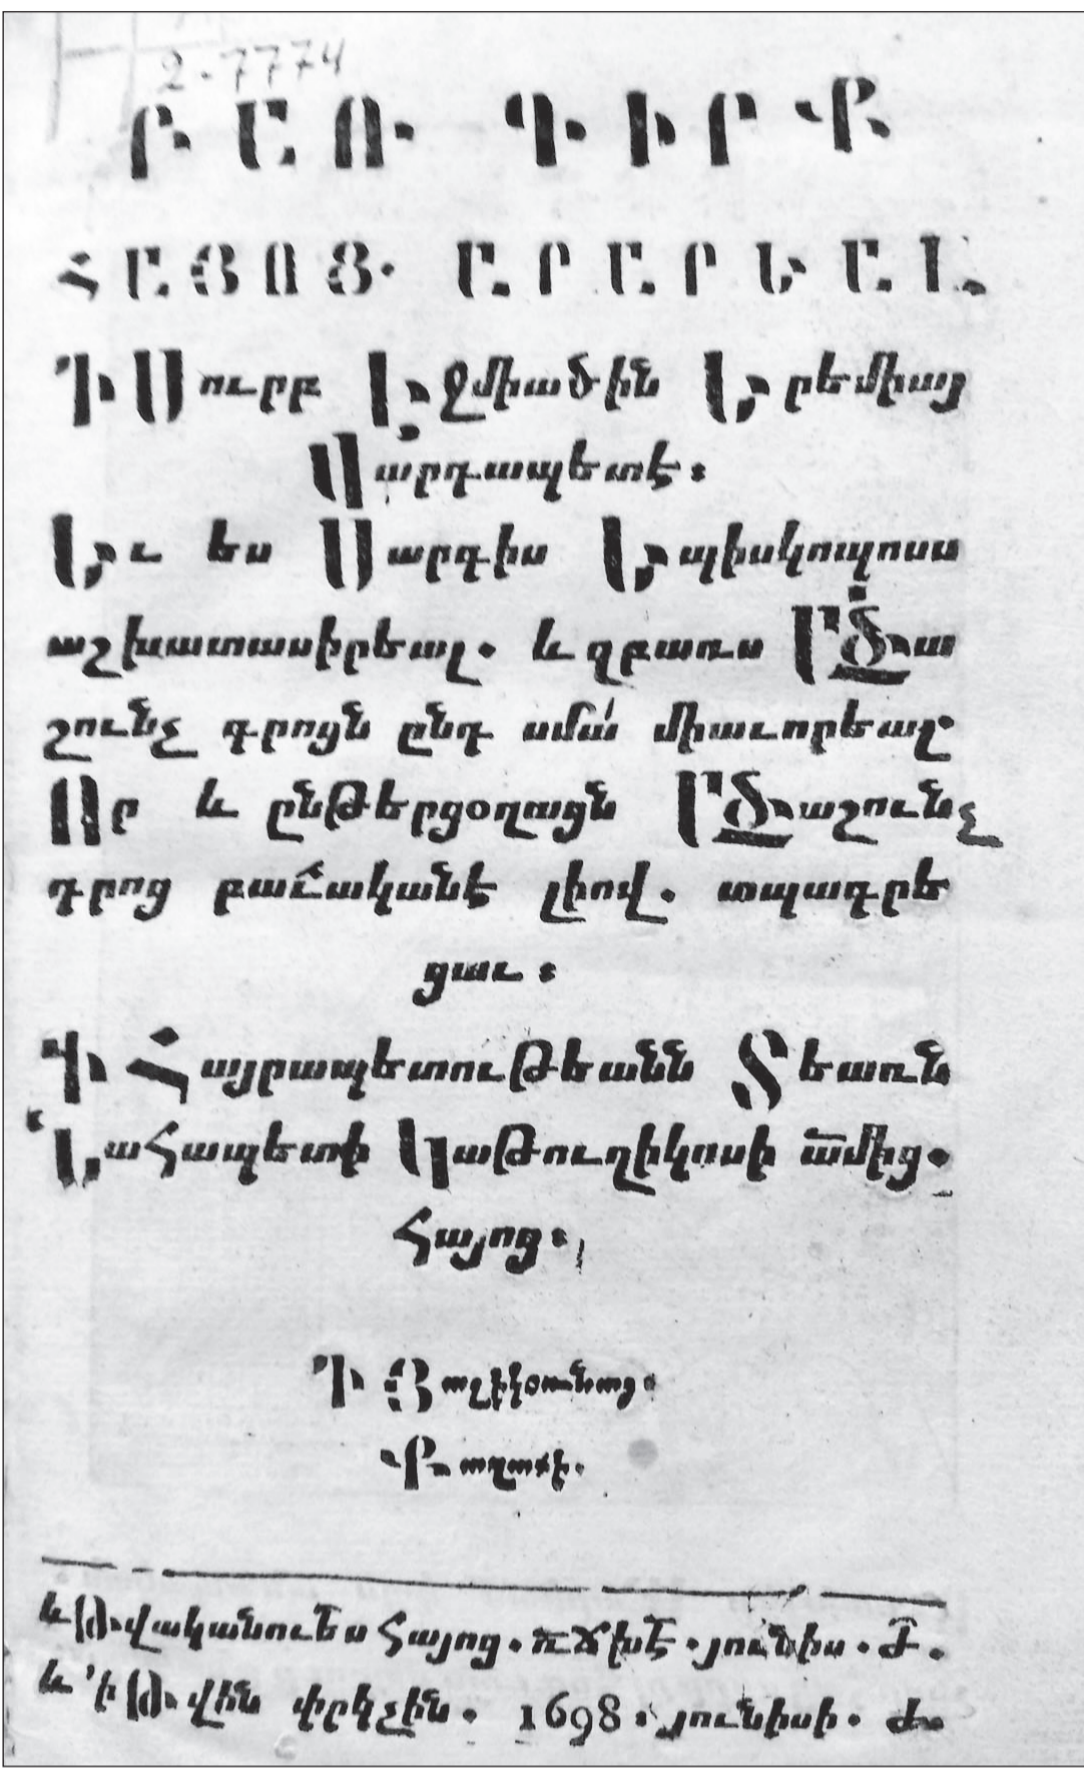 2-7774
ԲԱՌ ԳԻՐՔ
ՀԱՅՈՑ. ԱՐԱՐԵԱԼ
Ի Սուրբ Էջմիածին Երեմիայ
Վարդապետէ։
Եւ ես Սարգիս Եպիսկոպոսս
աշխատասիրեալ. և զբառս Աﬆուա
շունչ գրոյն ընդ սմա միաւորեալ
Որ և ընթերցօղացն Աﬆուաշունչ
գրոց բաւականէ լիով. տպագրե
ցաւ։
Ի Հայրապետութեանն Տեառն
Նահապետի Կաթուղիկոսի ամից.
Հայոց։
Ի Յալիկօռնայ.
Քաղաքի.
և Թվականութես Հայոց. ռճխէ. յունիս.
և ՚ի Թվին փրկչին. 1698. յունիսի. ժ